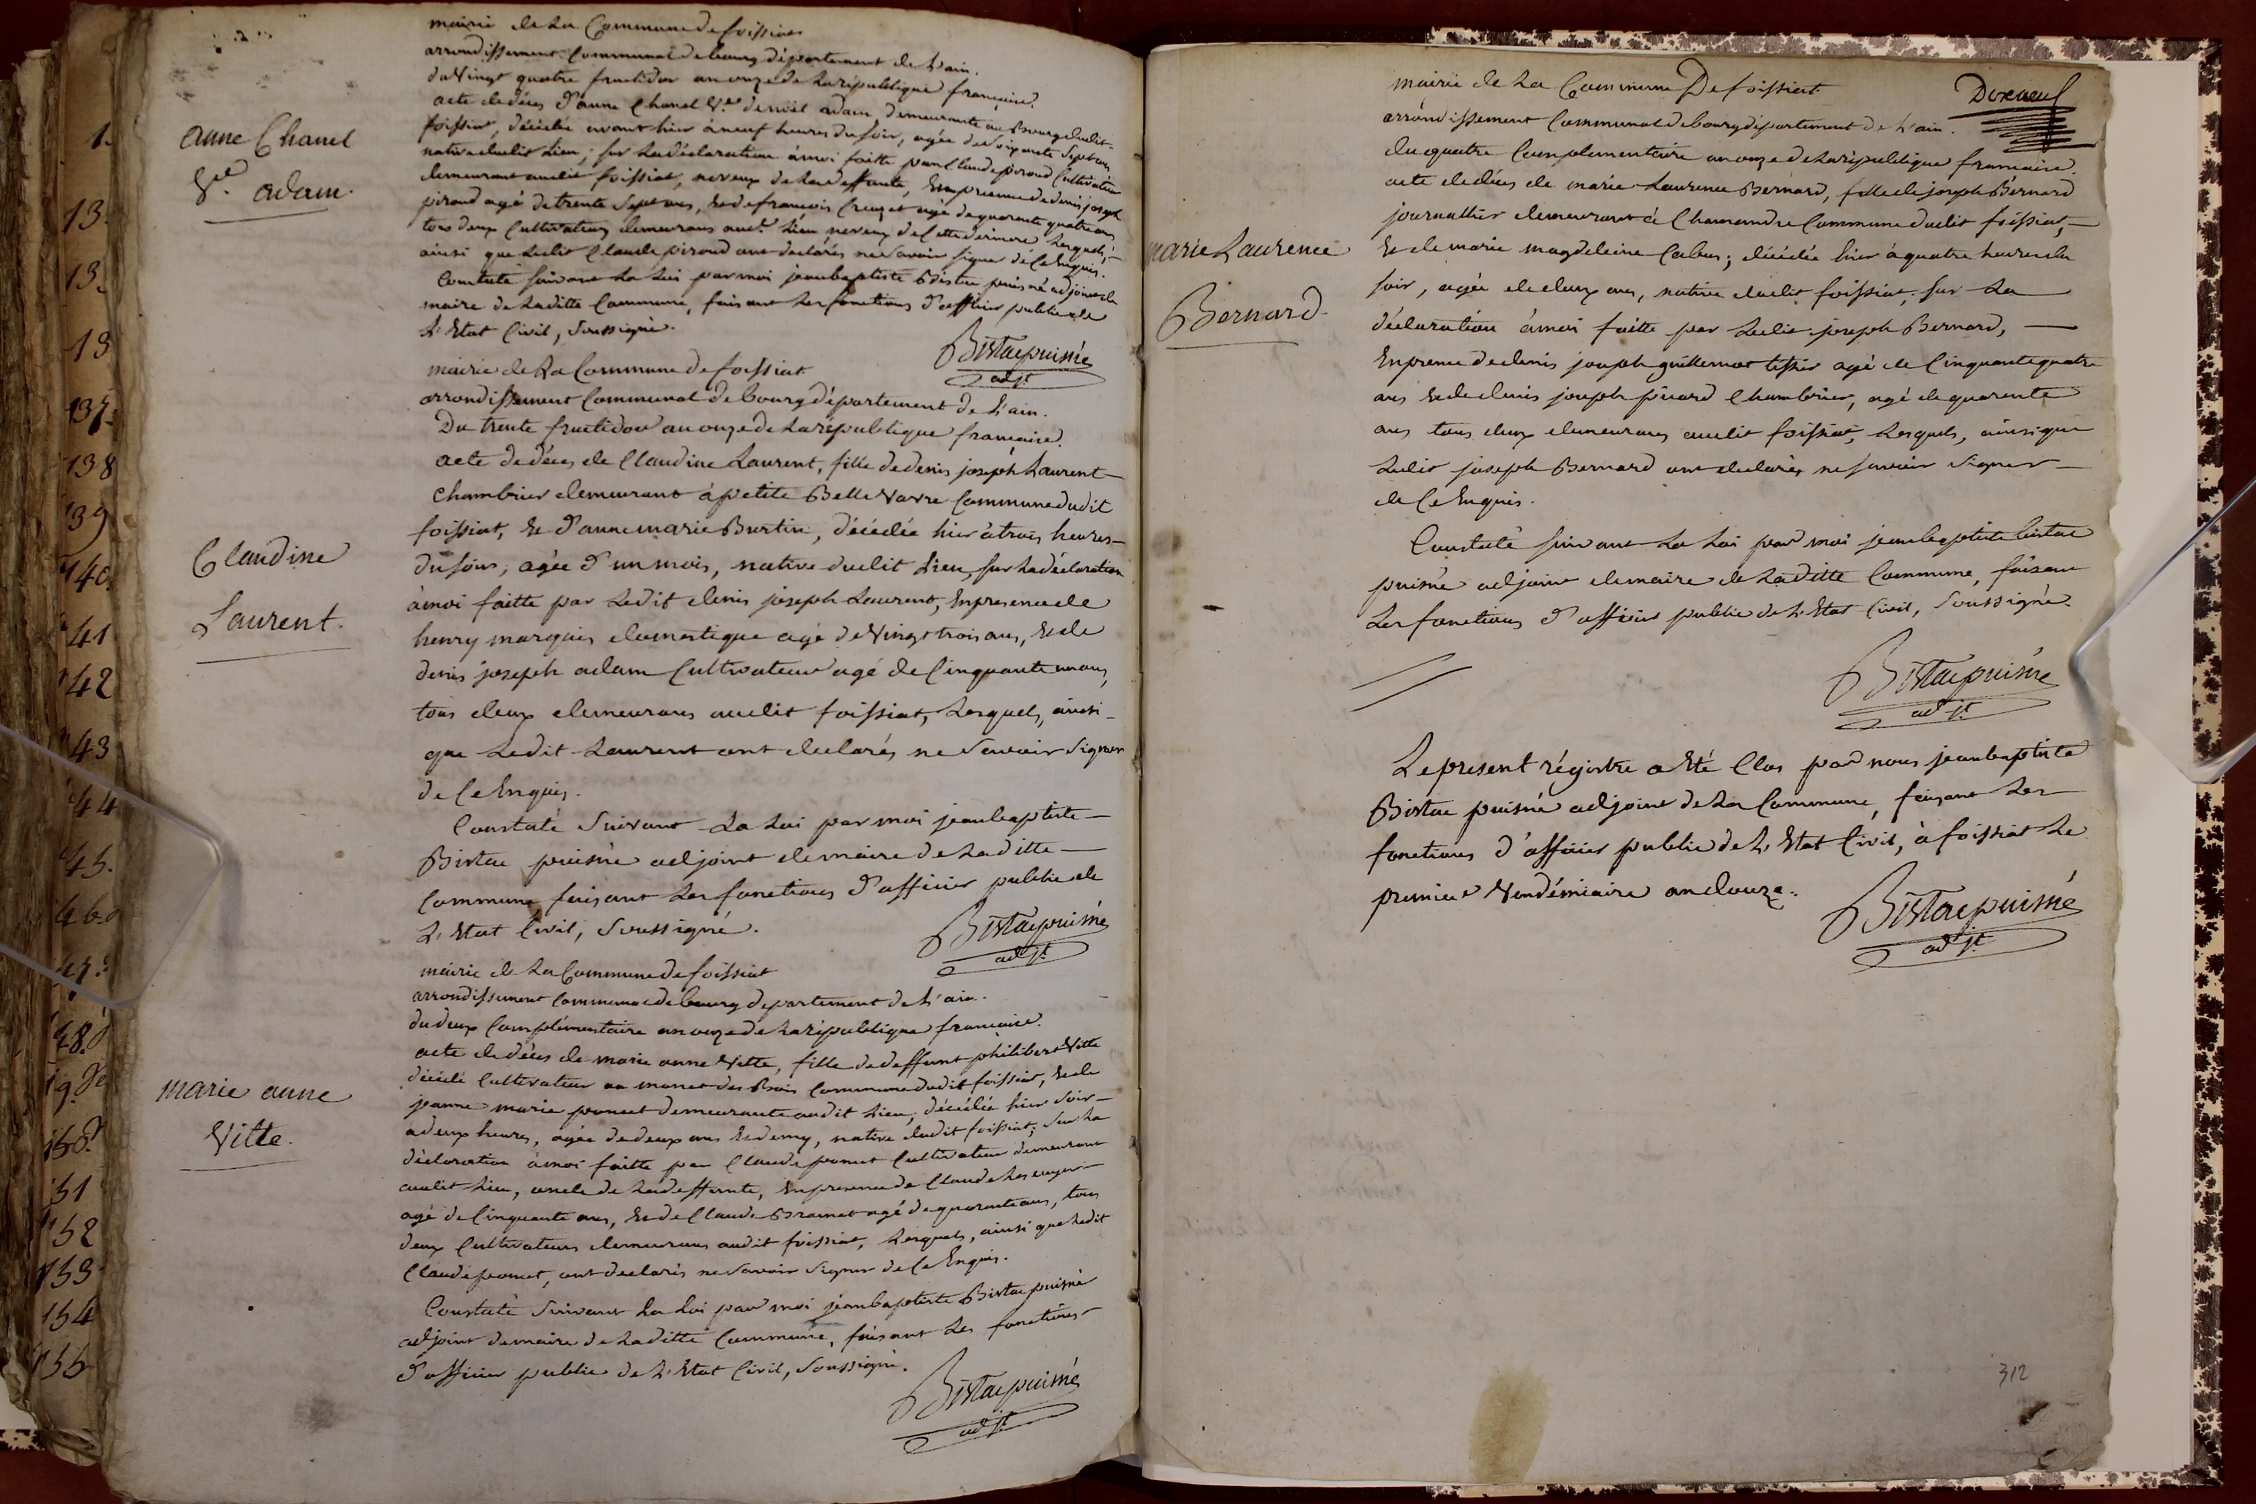 1.
13.
13.
13
137.
138
139
140.
141
142
143
144
145.
146.
147.
148.
149.
150.
151
152
153
154
155
anne Chanel
Ve. adam.
mairie de La Commune de foissiat
arrondissement Communal de bourg département de L'ain.
du Vingt quatre fructidor an onze de La république française.
acte de décès d'anne Chanel Ve. de noël adam, demeurante au Bourg dudit
foissiat, décédée avant hier à neuf heures du soir, agée de soixante Sept ans
native dudit Lieu; sur La déclaration à moi faitte par Claude piroud Cultivateur
demeurant audit foissiat, neveux de La deffunte, En presence de denis joseph
piroud agé de trente Sept ans, Et de françois Creuzet agé de quarante quatre ans
tous deux Cultivateurs demeurans aud. Lieu neveux de Cette derniere Lesquels,
ainsi que Ledit Claude piroud ont declarés ne Savoir signer de Ce Enquis.
Constaté suivant La Loi par moi jeanbaptiste Bistac puisné adjoint de
maire de Laditte Commune, faisant Les fonctions d'officier public de
L'Etat Civil, Soussigné.
Bistac puisné
adjt
Claudine
Laurent.
mairie de La Commune de foissiat
arrondissement Communal de bourg département de L'ain.
Du trente fructidor an onze de La république française.
acte de décès de Claudine Laurent, fille de denis joseph Laurent
Chambrier demeurant à petite Belle Vavre Commune dudit
foissiat, Et d'anne marie Burtin, décédée hier à trois heures
du soir, agée d'un mois, native dudit Lieu, sur La déclaration
à moi faitte par Ledit denis joseph Laurent, En presence de
henry marguin domestique agé de Vingt trois ans, Et de
denis joseph adam Cultivateur agé de Cinquante un ans,
tous deux demeurans audit foissiat, Lesquels, ainsi
que Ledit Laurent ont declarés ne Savoir signer
de Ce Enquis.
Constaté Suivant La Loi par moi jeanbaptiste
Bistac puisné adjoint de maire de Laditte
Commune faisant Les fonctions d'officier public de
L'Etat Civil, Soussigné.
Bistac puisné
adjt
marie anne
Vitte.
mairie de La Commune de foissiat
arrondissement Communal de bourg département de L'ain.
du deux Complémentaire an onze de La république française.
acte de décès de marie anne Vitte, fille de deffunt philibert Vitte
décédé Cultivateur au manet des Bois Commune dudit foissiat, Et de
jeanne marie poncet demeurante audit Lieu, décédée hier soir
a deux heures, agée de deux ans Et demy, native dudit foissiat; Sur La
déclaration à moi faitte par Claude poncet Cultivateur demeurant
audit Lieu, oncle de La deffunte, En presence de Claude
agé de Cinquante ans, Et de Claude Bramet agé de quarante ans, tous
deux Cultivateurs demeurans audit foissiat, Lesquels, ainsi que Ledit
Claude poncet, ont declarés ne Savoir Signer de Ce Enquis.
Constaté Suivant La Loi par moi jeanbaptiste Bistac puisné
adjoint de maire de Laditte Commune, faisant Les fonctions
d'officier public de L'Etat Civil, Soussigné.
Bistac puisné
adjt
marie Laurence
Bernard.
mairie de La Commune De foissiat
arrondissement Communal de bourg département de L'ain.
du quatre Complementaire an onze de La république française.
acte de décès de marie Laurence Bernard, fille de joseph Bernard
journallier demeurant à Chamandre Commune dudit foissiat,
Et de marie magdeleine Cabus; décédée hier à quatre heures du
soir, agée de deux ans, native dudit foissiat; sur La
déclaration à moi faitte par Ledit joseph Bernard,
En presence de denis joseph guillemot tissier agé de Cinquante quatre
ans Et de denis joseph pirard Chambrier, agé de quarente
ans tous deux demeurans audit foissiat, Lesquels, ainsi que
Ledit joseph Bernard ont declarés ne Savoir Signer
de Ce Enquis.
Constaté suivant La Loi par moi jeanbaptiste bistac
puisné adjoint de maire de Laditte Commune, faisant
Les fonctions d'officier public de L'Etat Civil, Soussigné.
Bistac puisné
adjt
Le present régistre a Eté Clos par nous jeanbaptiste
Bistac puisné adjoint de La Commune, faisant Les
fonctions d'officier public de L'Etat Civil, à foissiat Le
premier Vendémiaire an douze.
Bistac puisné
adjt
312